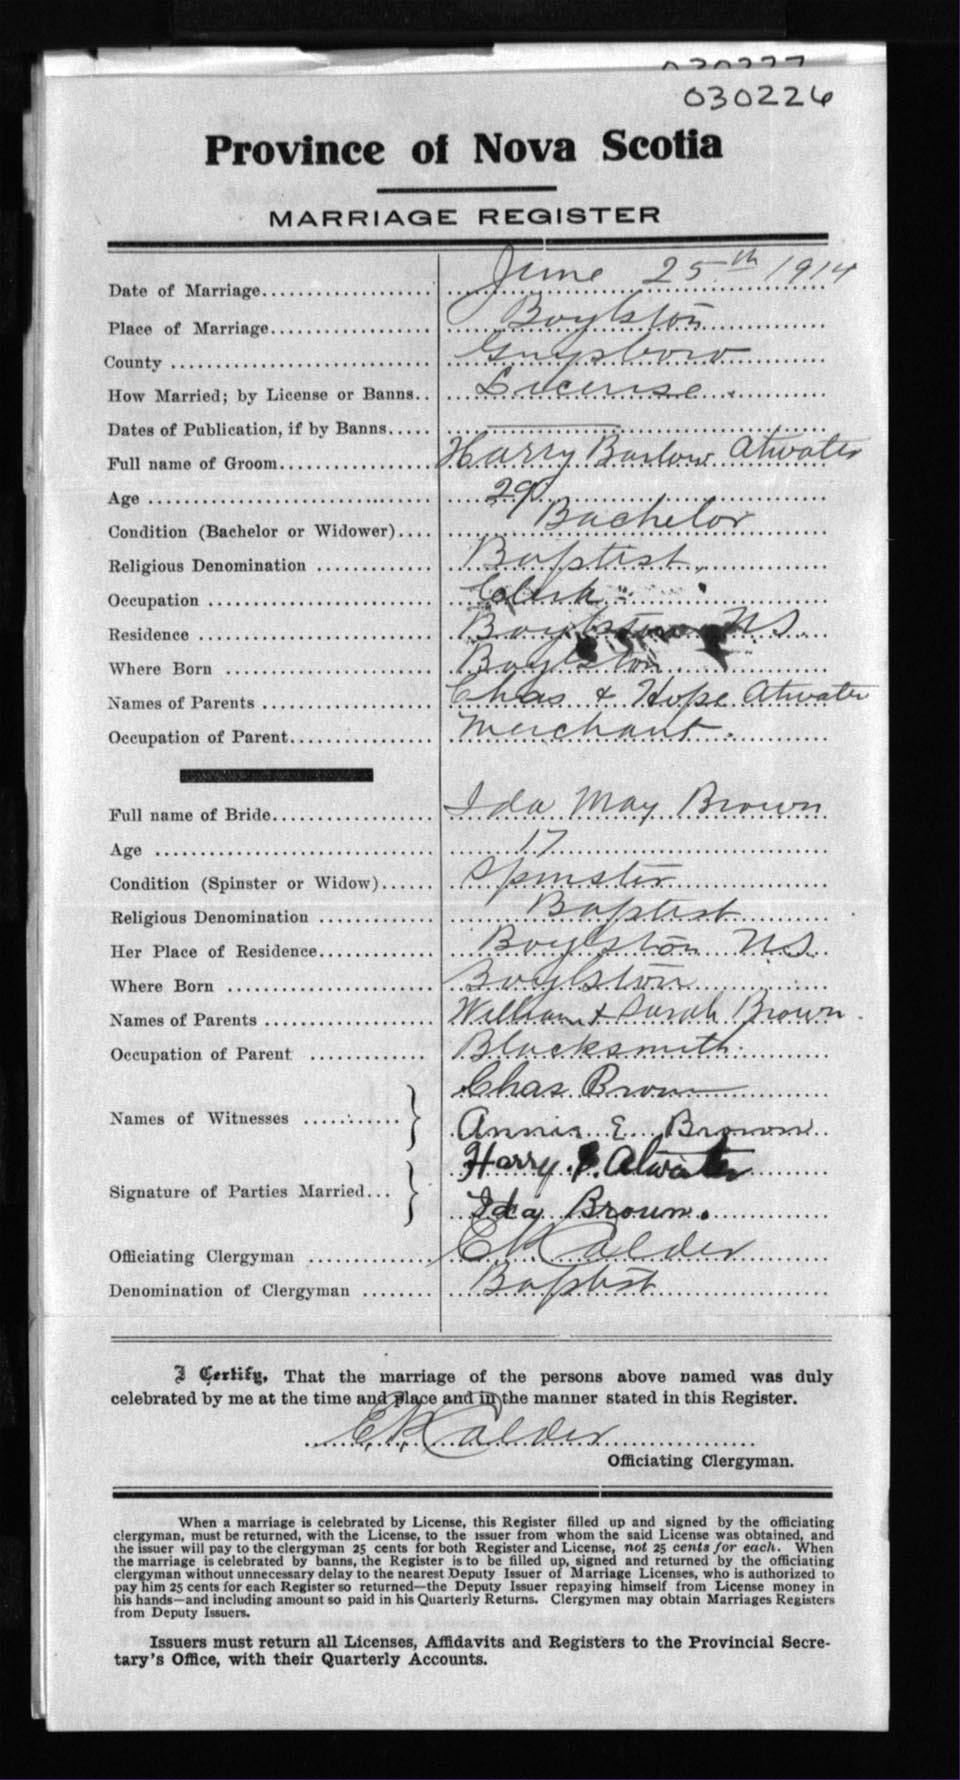 030226
Province of Nova Scotia
MARRIAGE REGISTER
Date of Marriage June 25th 1914
Place of Marriage Boylston
County Guysboro
How Married; by License or Banns License
Dates of Publication, if by Banns
Full name of Groom Harry Barlow Atwater
Age 29
Condition (Bachelor or Widower) Bachelor
Religious Denomination Baptist
Occupation Clerk
Residence Boylston NS
Where Born Boylston
Names of Parents Chas & Hope Atwater
Occupation of Parent Merchant.
Full name of Bride Ida May Brown
Age 17
Condition (Spinster or Widow) Spinster
Religious Denomination Baptist
Her Place of Residence Boylston N.S.
Where Born Boylston
Names of Parents William & Sarah Brown
Occupation of Parent Blacksmith
Chas Brown
Names of Witnesses
Annie E. Brown
Harry Atwater
Signature of Parties Married
Ida Brown.
Officiating Clergyman E K Calder
Denomination of Clergyman Baptist
I Certify, That the marriage of the persons above named was duly
celebrated by me at the time and place and in the manner stated in this Register.
E K Calder
Officiating Clergyman.
When a marriage is celebrated by License, this Register filled up and signed by the officiating
clergyman, must be returned, with the License, to the issuer from whom the said License was obtained, and
the issuer will pay to the clergyman 25 cents for both Register and License, not 25 cents for each. When
the marriage is celebrated by banns, the Register is to be filled up, signed and returned by the officiating
clergyman without unnecessary delay to the nearest Deputy Issuer of Marriage Licenses, who is authorized to
pay him 25 cents for each Register so returned—the Deputy Issuer repaying himself from License money in
his hands—and including amount so paid in his Quarterly Returns. Clergymen may obtain Marriages Registers
from Deputy Issuers.
Issuers must return all Licenses, Affidavits and Registers to the Provincial Secre-
tary's Office, with their Quarterly Accounts.